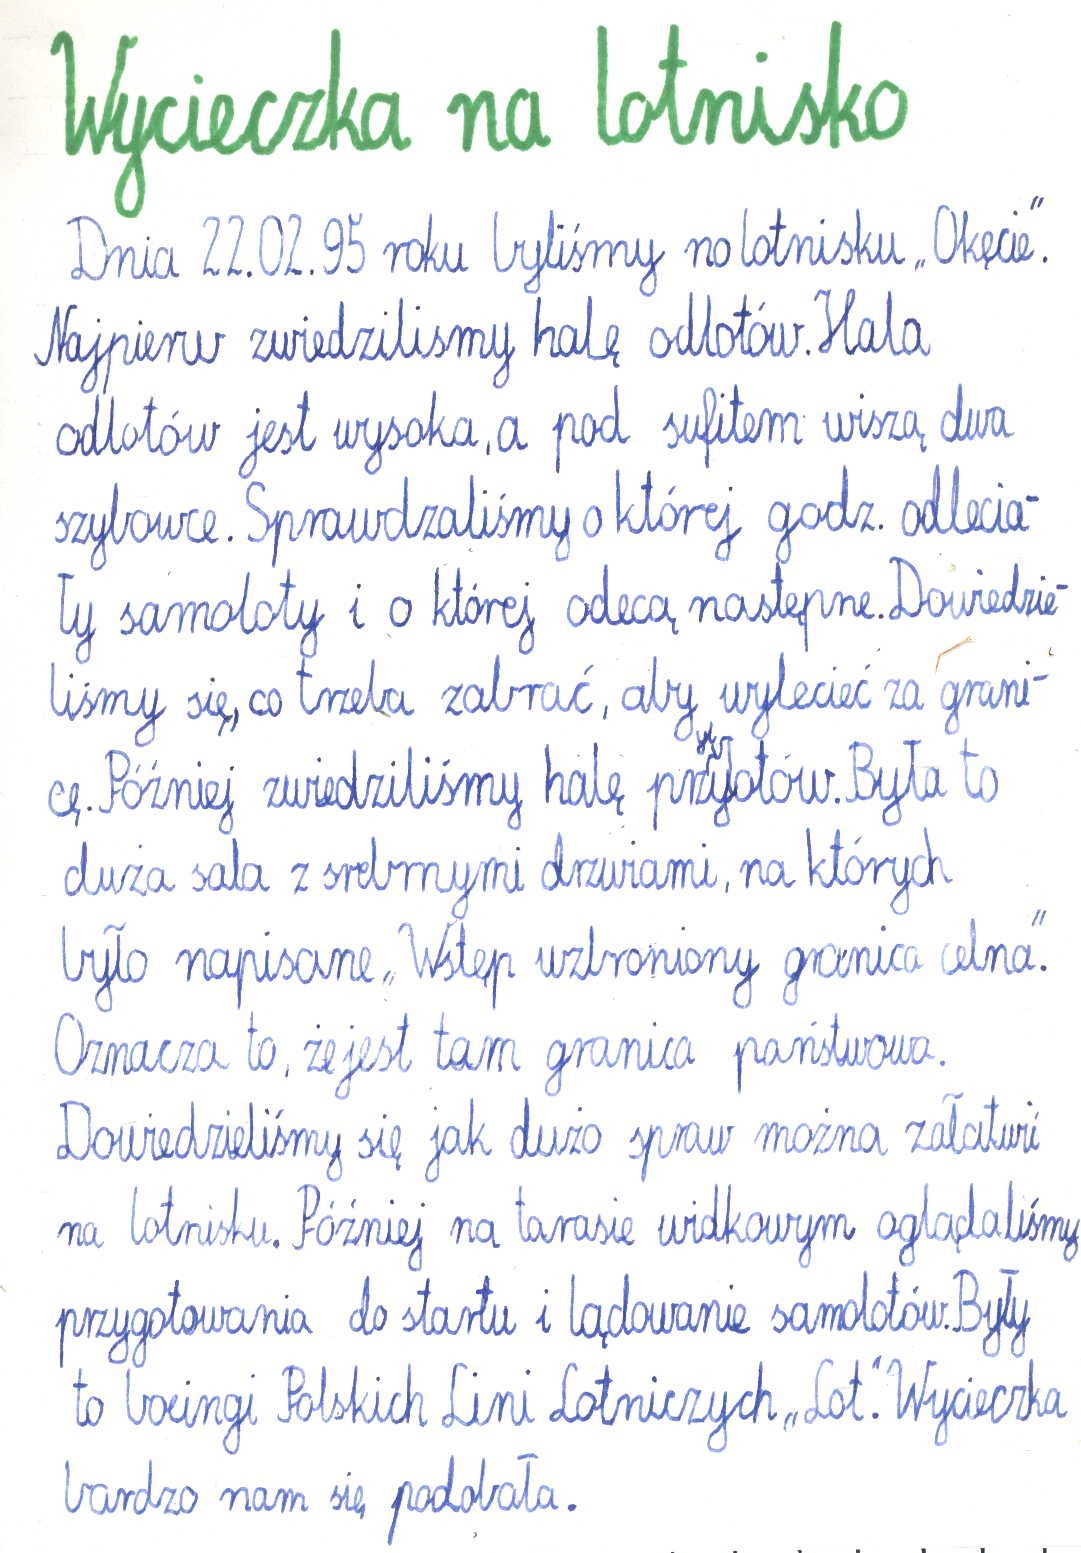 Wycieczka na lotnisko
Dnia 22.02.95 roku byliśmy na lotnisku „Okęcie".
Najpierw zwiedzilismy halę odlotów. Hala
odlotów jest wysoka, a pod sufitem wiszą dwa
szybowce. Sprawdzaliśmy o której godz. odlecia-
ły samoloty i o której odecą następne. Dowiedzie-
liśmy się, co trzeba zabrać, aby wylecieć za grani-
cę. Później zwiedziliśmy halę przylotów. Była to
duża sala z srebrnymi drzwiami, na których
było napisane „Wstęp wzbroniony granica celna".
Oznacza to, że jest tam granica państwowa.
Dowiedzieliśmy się jak dużo spraw można załatwi
na lotnisku. Później na tarasie widkowym oglądaliśmy
przygotowania do startu i lądowanie samolotów. Były
to boeingi Polskich Lini Lotniczych „Lot". Wycieczka
bardzo nam się podobała.